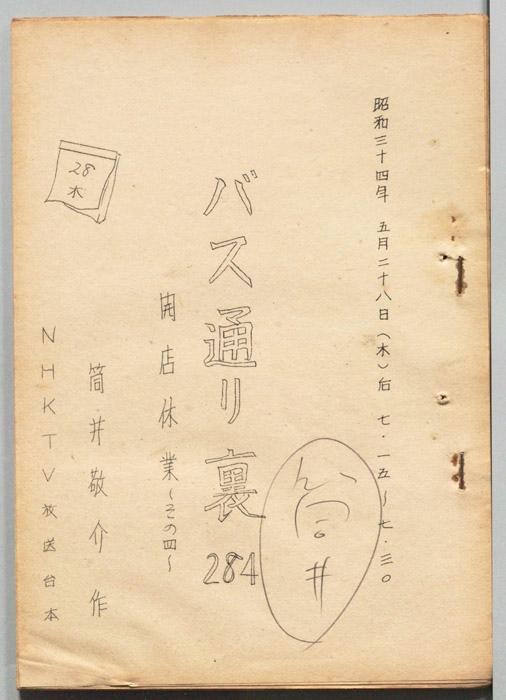 昭和三十四年 五月二十八日（木）后 七・一五～七・三〇
バス通り裏 284
筒井
開店休業～その四～
筒井敬介 作
NHKTV放送台本
28
木